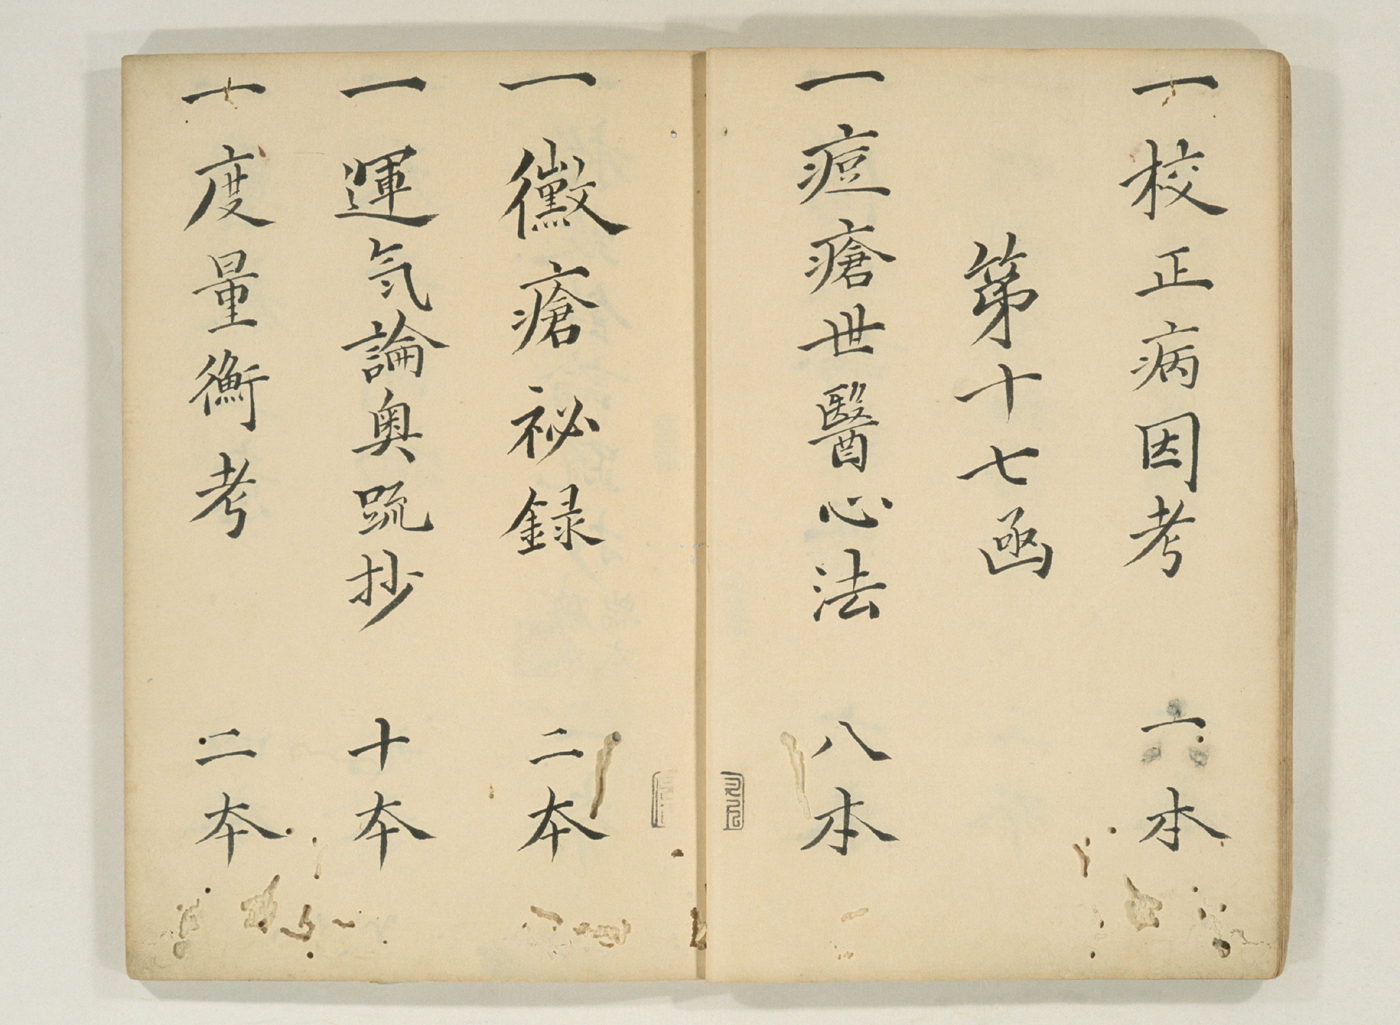 一校正病因考 一本
第十七函
一痘瘡世醫心法 八本
一黴瘡祕録 二夲
一運気論奥䟽抄 十夲
一度量衡考 二夲